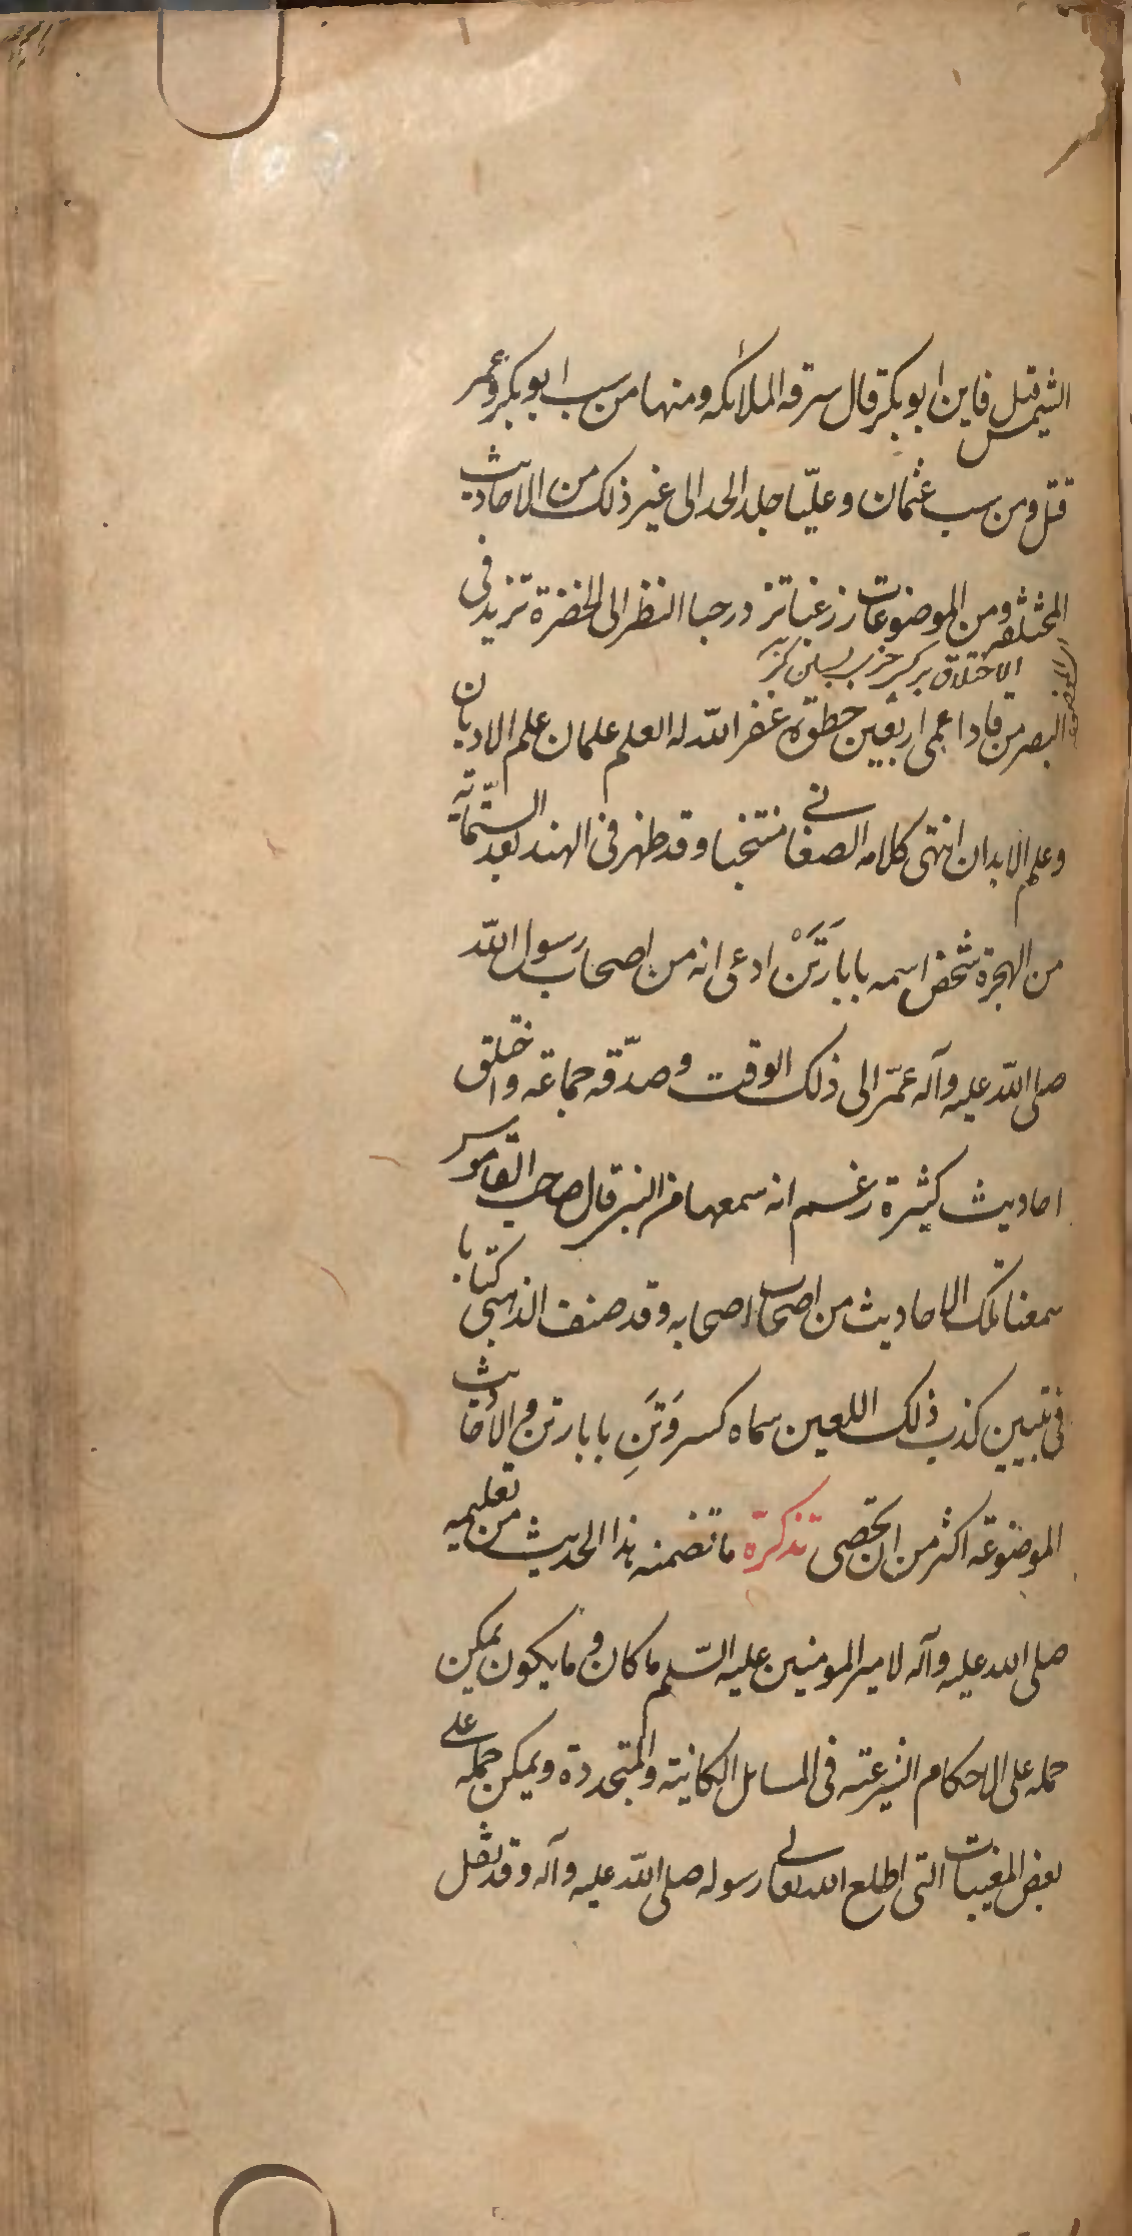 الشمس قيل فاين ابو بكر قال سرقه الملائكه ومنها من سب ابو بكر وعمر
قتل ومن سب عثمان وعليّا جلد الحد الى غير ذلك من الاحاديث
المختلقه ومن الموضوعات زر غبا تزدد حبا النظر الى الخضرة تزيد فى
الاختلاق بر كسر
البصر من قاد اعمى اربعين خطوة غفر الله له العلم علمان علم الاديان
وعلم الابدان انتهى كلامه الصغانى منتخبا وقد ظهر فى الهند بعد الستّمائة
من الهجرة شخص اسمه بابا رَتَنْ ادعى انه من اصحاب رسول الله
صلى الله عليه وآله عمّر الى ذلك الوقت وصدّقه جماعة واختلق
احاديث كثيرة زعم انه سمعها من النبى قال صاحب القاموس
سمعنا تلك الاحاديث من اصحاب اصحابه وقد صنف الذهبى كتابا
فى تبيين كذب ذلك اللعين سماه كسر وَثَنِ بابا رتن والاحاديث
الموضوعة اكثر من ان تحصى تذكرة ما تضمنه هذا الحديث من تعليمه
صلى الله عليه وآله لامير المومنين عليه السّلم ما كان وما يكون يمكن
حمله على الاحكام الشرعية فى المسائل الكائنة والمتجددة ويمكن حمله على
بعض المغيبات التى اطلع الله تعالى رسوله صلى الله عليه وآله وقد نقل